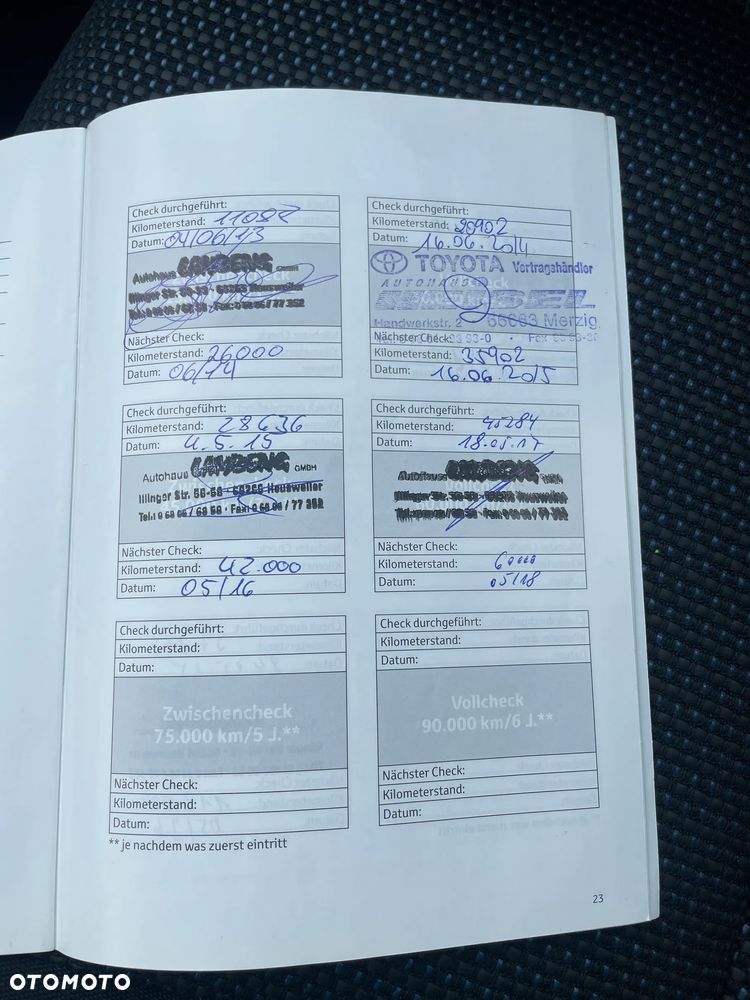 Check durchgeführt:
Kilometerstand: 11088
Datum: 04/06/13
Autohaus LAMBENG GMBH
Illinger Str. 56-58 · 66265 Heusweiler
Tel.: 0 68 06 / 69 58 · Fax: 0 68 06 / 77 352
Nächster Check:
Kilometerstand: 26000
Datum: 06/14
Check durchgeführt:
Kilometerstand: 20902
Datum: 16.06.2014
TOYOTA Vertragshändler
AUTOHAUS
Handwerkstr. 2 66663 Merzig
Nächster Check:
Kilometerstand: 35902
Datum: 16.06.2015
Check durchgeführt:
Kilometerstand: 28636
Datum: 4.5.15
Autohaus LAMBENG GMBH
Illinger Str. 56-58 · 66265 Heusweiler
Tel.: 0 68 06 / 69 58 · Fax: 0 68 06 / 77 352
Nächster Check:
Kilometerstand: 42.000
Datum: 05/16
Check durchgeführt:
Kilometerstand: 45284
Datum: 18.05.17
Autohaus
Illinger Str. 56-58 · 66265 Heusweiler
Tel.: 0 68 06 / 69 58 · Fax: 0 68 06 / 77 352
Nächster Check:
Kilometerstand: 60000
Datum: 05/18
Check durchgeführt:
Kilometerstand:
Datum:
Zwischencheck
75.000 km/5 J.**
Nächster Check:
Kilometerstand:
Datum:
Check durchgeführt:
Kilometerstand:
Datum:
Vollcheck
90.000 km/6 J.**
Nächster Check:
Kilometerstand:
Datum:
** je nachdem was zuerst eintritt
23
OTOMOTO